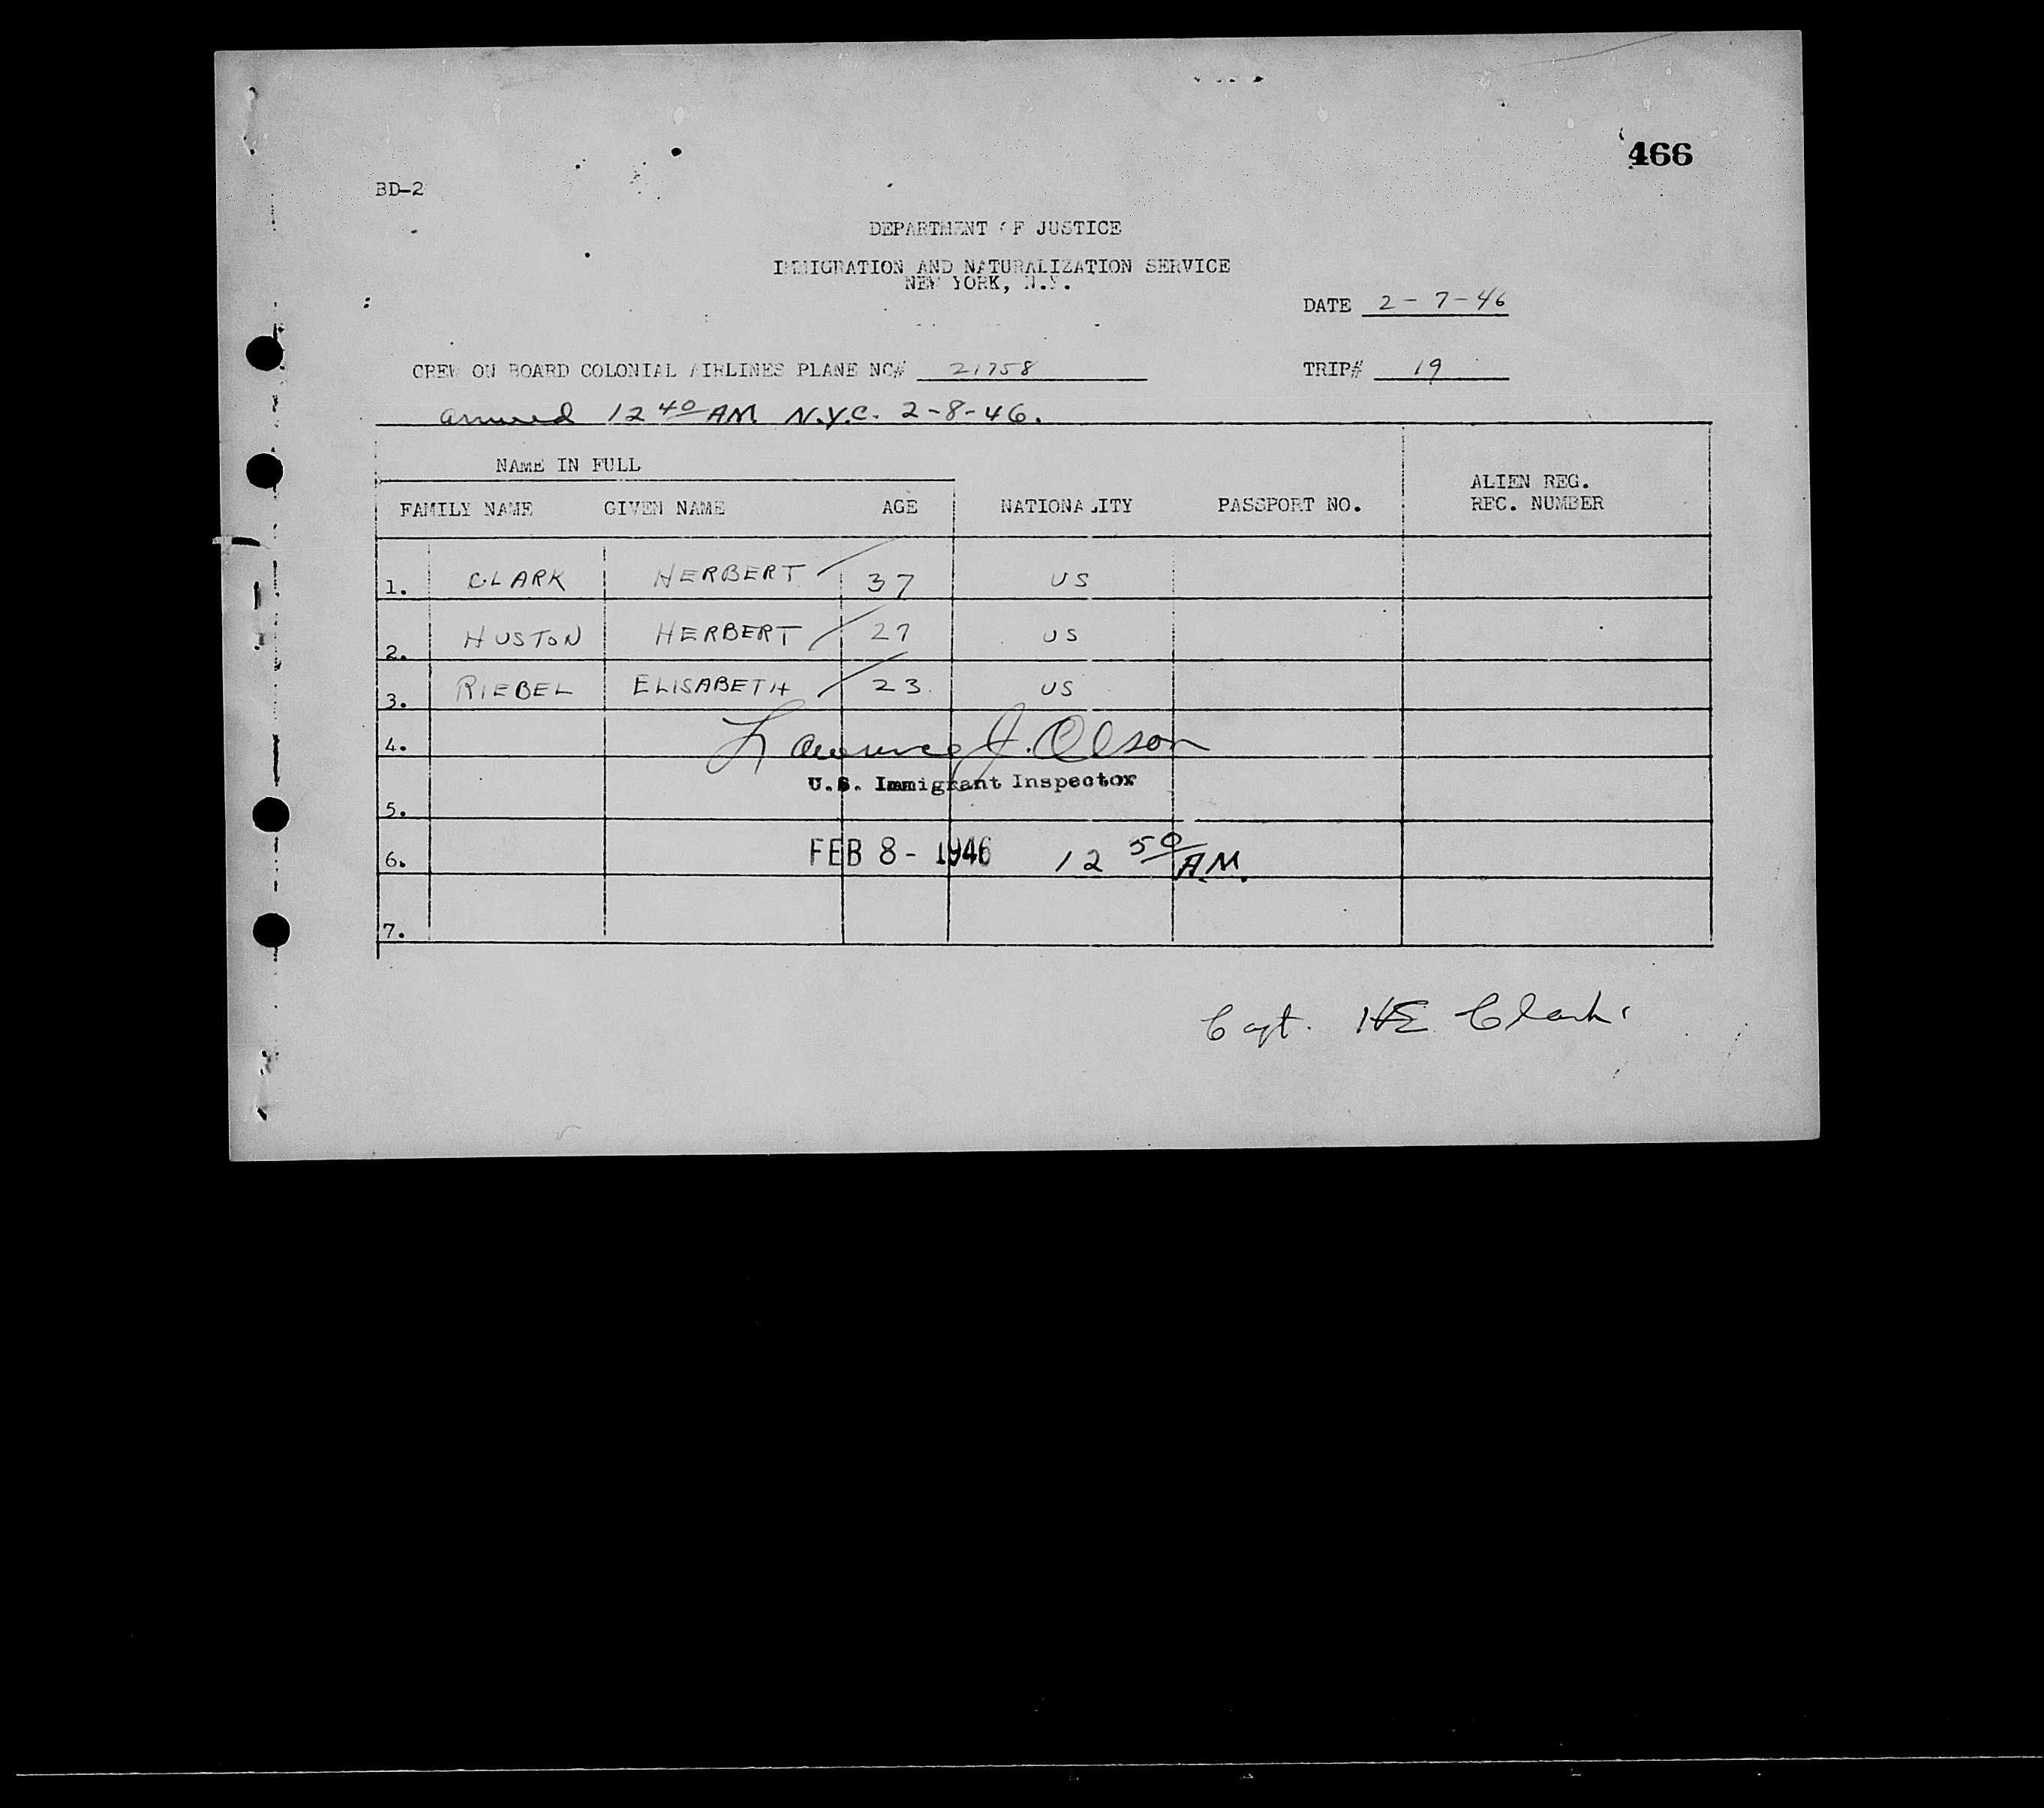 466
BD-2
DEPARTMENT OF JUSTICE
IMMIGRATION AND NATURALIZATION SERVICE
NEW YORK, N.Y.
DATE 2-7-46
CREW ON BOARD COLONIAL AIRLINES PLANE NC# 21758 TRIP# 19
arrived 12 40 AM N.Y.C. 2-8-46.
NAME IN FULL
FAMILY NAME GIVEN NAME AGE NATIONALITY PASSPORT NO. ALIEN REG. REC. NUMBER
1. CLARK HERBERT 37 US
2. HUSTON HERBERT 27 US
3. RIEBEL ELISABETH 23 US
4. Lawrence J. Olson
U.S. Immigrant Inspector
5.
6. FEB 8 - 1946 12 50 A.M.
7.
Capt. HE Clark